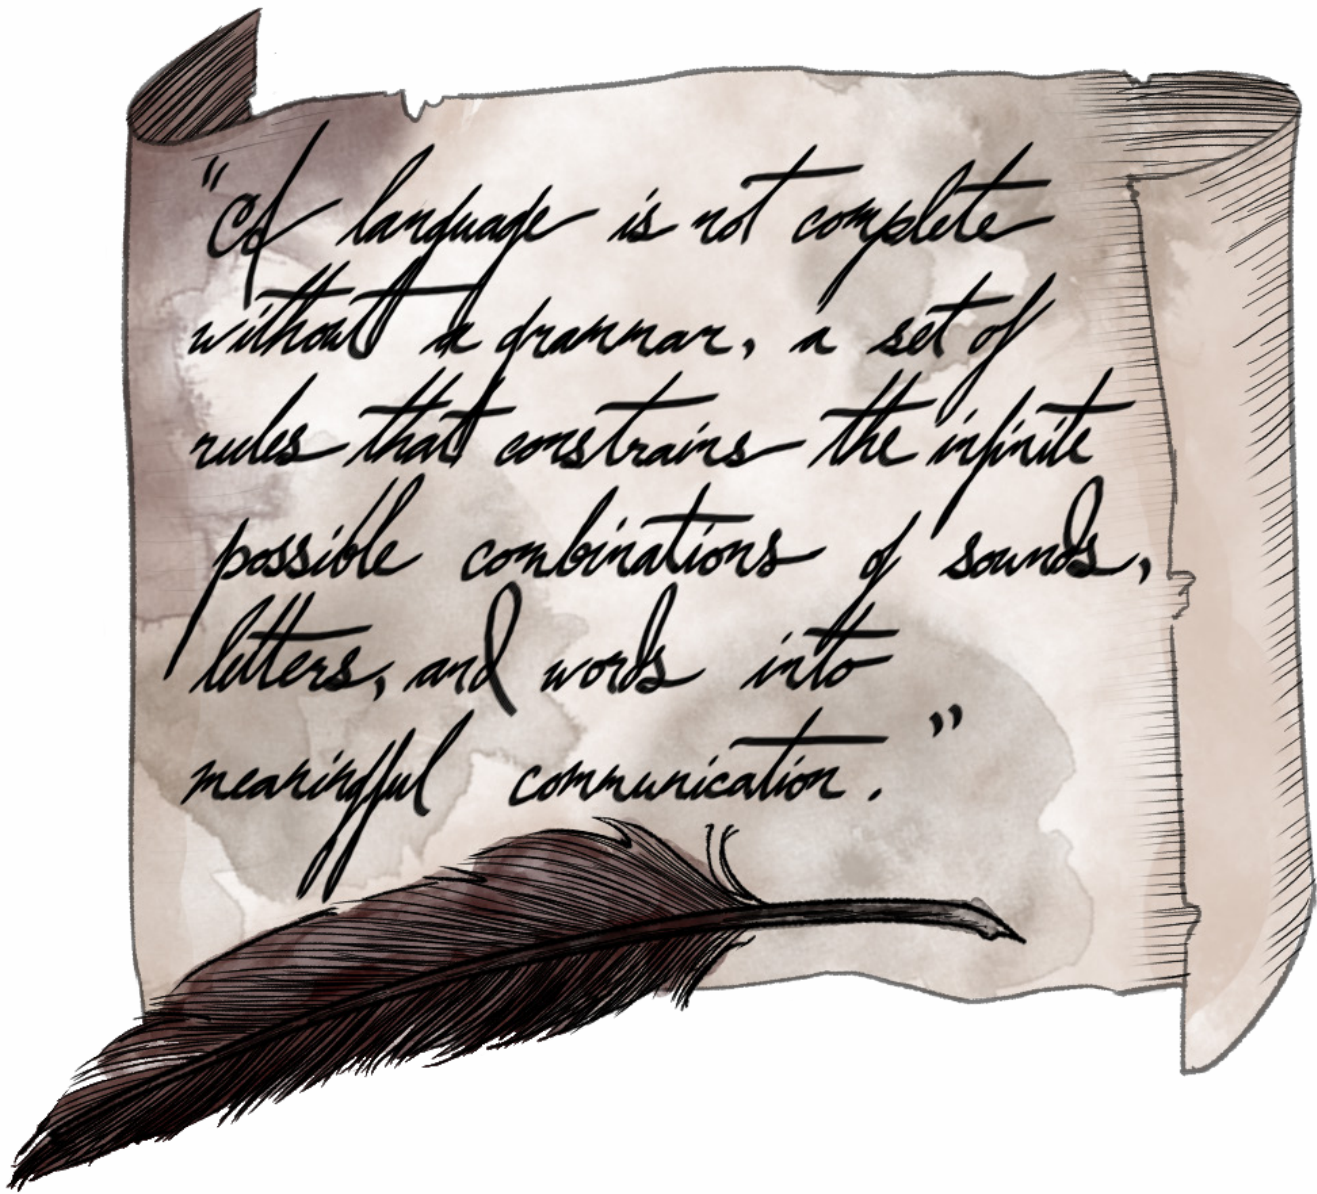 "A language is not complete
without a grammar, a set of
rules that constrains the infinite
possible combinations of sounds,
letters, and words into
meaningful communication."